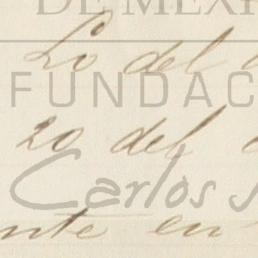 DE MEXI
Lo del
FUNDAC
20 del
Carlos
nte en